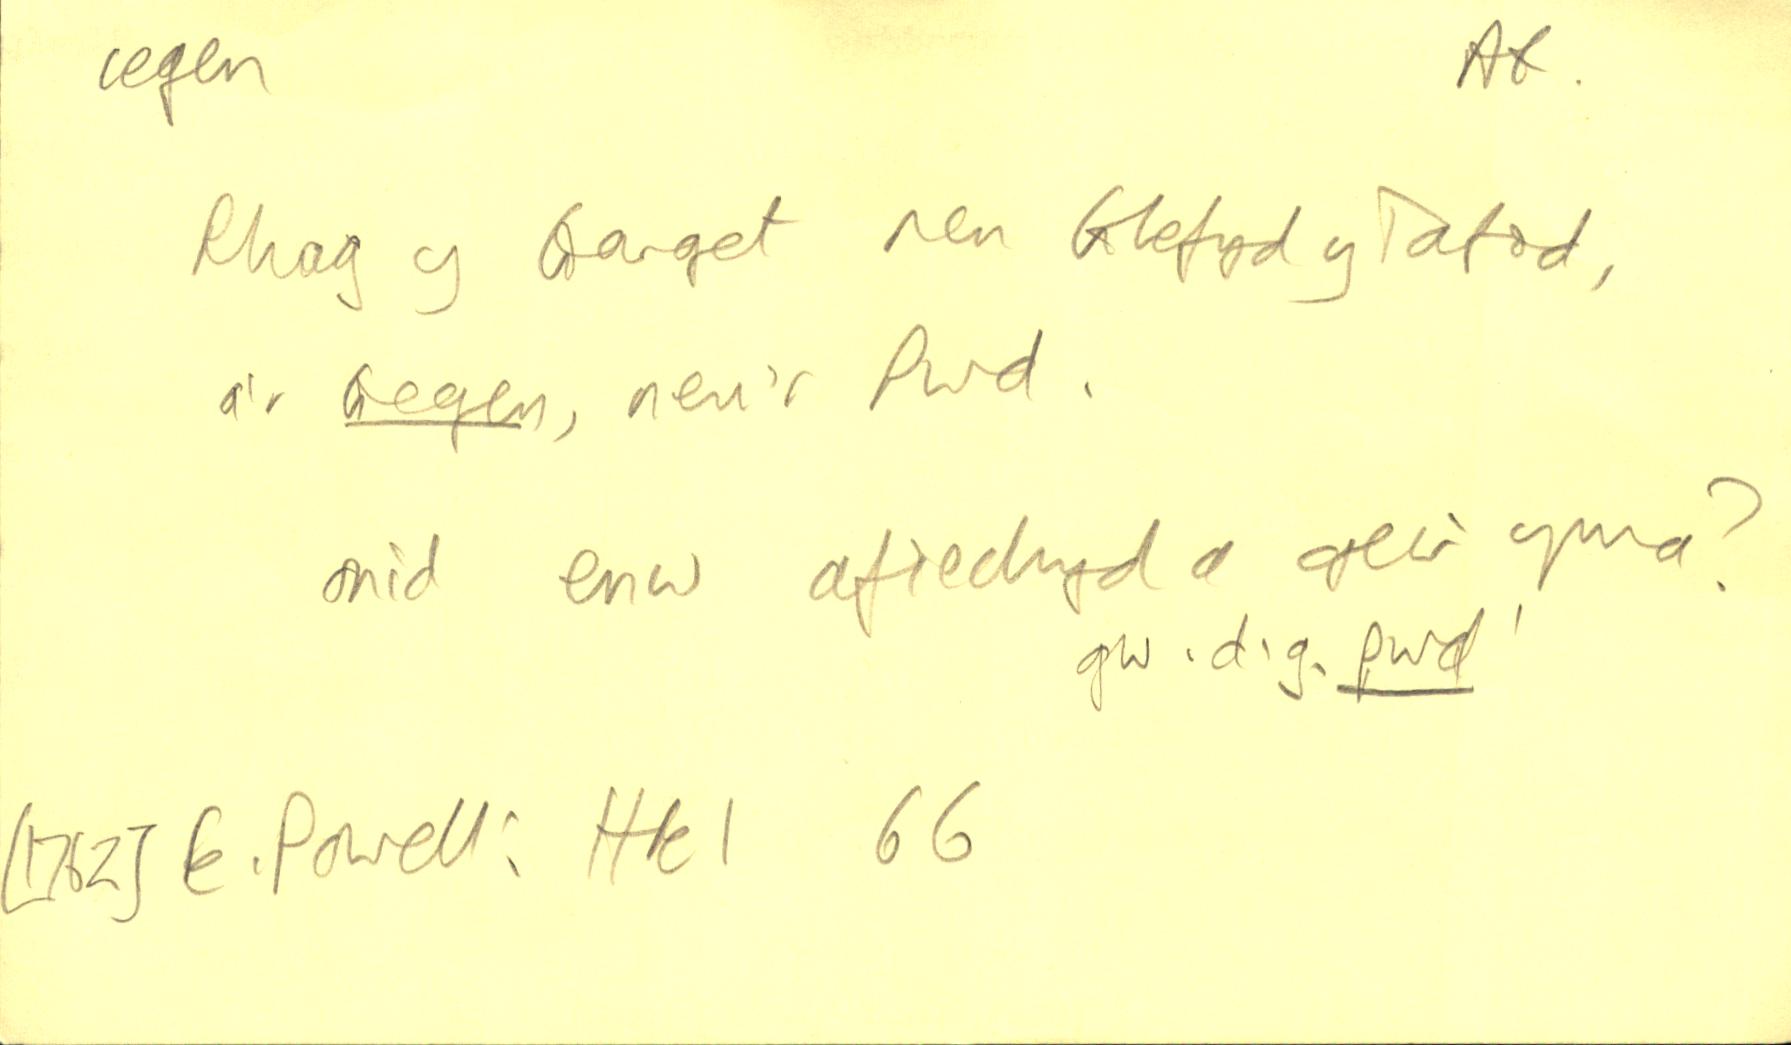 cegen
Rhag y Garget neu Glefyd y Tafod,
a'r Gegen, neu'r Pwd.
onid enw afiechyd a geir yma?
gw. d.g. pwd'
[1762] E. Powell: HEI 66